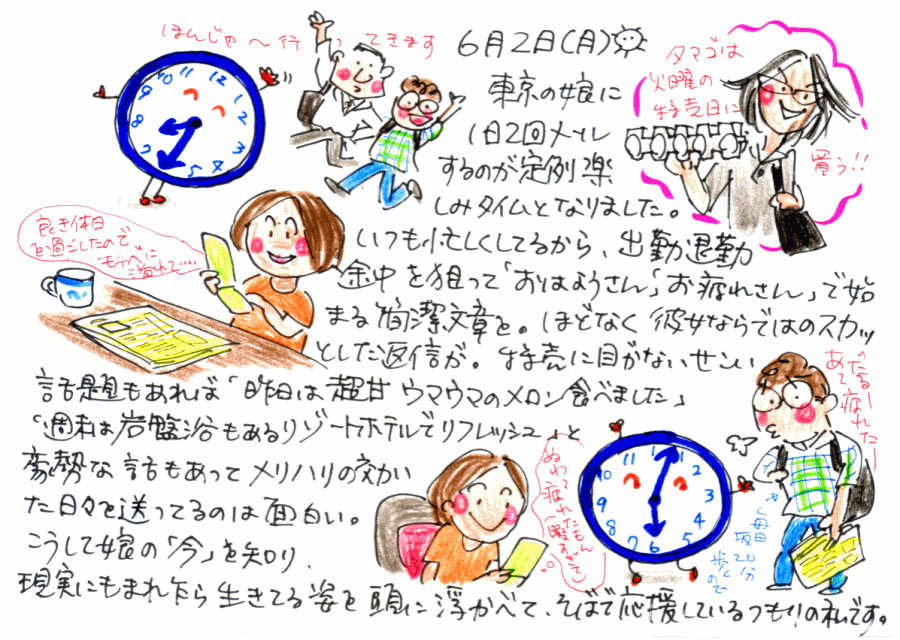 ほんじゃ〜行ってきます
6月2日(月)
東京の娘に
1日2回メール
するのが定例楽
しみタイムとなりました。
いつも忙しくしてるから、出勤退勤
途中を狙って「おはようさん」「お疲れさん」で始
まる簡潔文章を。ほどなく彼女ならではのスカッ
とした返信が。特売に目がないせこい
話題もあれば「昨日は超甘ウマウマのメロン食べました」
「週末は岩盤浴もあるリゾートホテルでリフレッシュ」と
豪勢な話もあってメリハリの効い
た日々を送ってるのは面白い。
こうして娘の「今」を知り、
現実にもまれながら生きてる姿を頭に浮かべて、そばで応援しているつもりの私です。
タマゴは
火曜の
特売日に
買う!!
良き休日
を過ごしたので
モチベに
溢れて……
12
1
2
3
4
5
7
8
9
10
11
ぬわ〜
疲れたもん
暇すぎて
12
1
2
3
4
5
6
7
8
9
10
11
だるーー
あー疲れたー
毎日
坂20分
歩くので